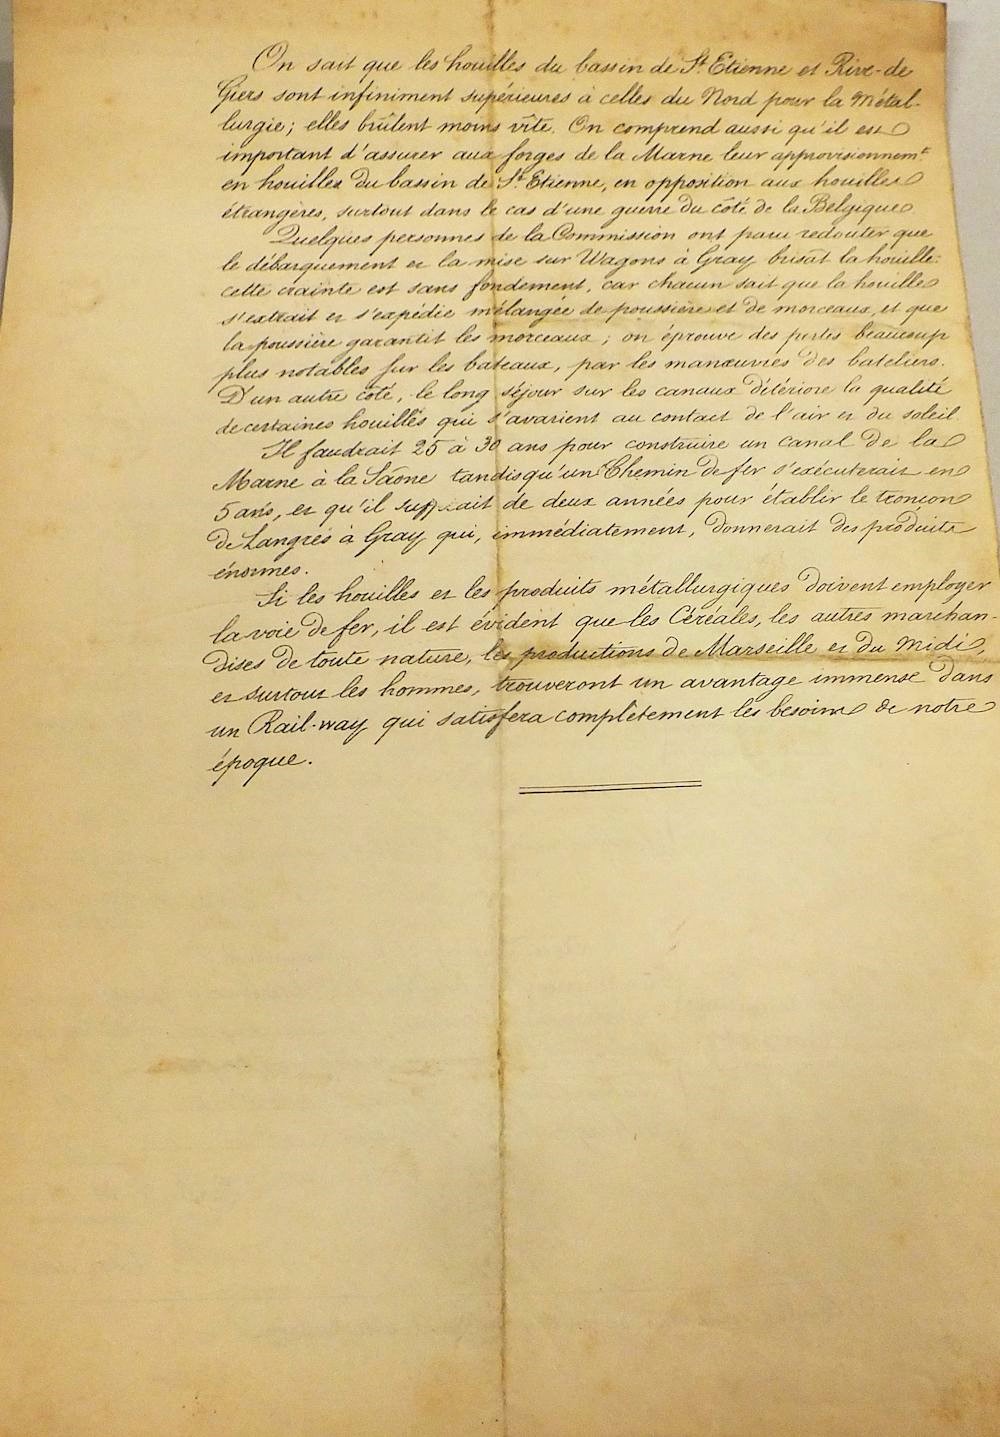 On sait que les houilles du bassin de St Etienne et Rive-de
Giers sont infiniment supérieures à celles du Nord pour la Métal-
lurgie; elles brûlent moins vîte. On comprend aussi qu'il est
important d'assurer aux forges de la Marne leur approvisionnemt
en houilles du bassin de St Etienne, en opposition aux houilles
étrangères, surtout dans le cas d'une guerre du côté de la Belgique.
Quelques personnes de la Commission ont paru redouter que
le débarquement et la mise sur Wagons à Gray brisât la houille:
cette crainte est sans fondement, car chacun sait que la houille
s'extrait et s'expédie mélangée de poussière et de morceaux, et que
la poussière garantit les morceaux; on éprouve des pertes beaucoup
plus notables sur les bateaux, par les manœuvres des bateliers.
D'un autre côté, le long séjour sur les canaux détériore la qualité
de certaines houilles qui s'avarient au contact de l'air et du soleil
Il faudrait 25 à 30 ans pour construire un canal de la
Marne à la Sâone tandisqu'un Chemin de fer s'exécuterait en
5 ans, et qu'il suffirait de deux années pour établir le tronçon
de Langres à Gray qui, immédiatement, donnerait des produits
énormes.
Si les houilles et les produits métallurgiques doivent employer
la voie de fer, il est évident que les Céréales, les autres marchan-
dises de toute nature, les productions de Marseille et du Midi,
et surtout les hommes, trouveront un avantage immense dans
un Rail-way qui satisfera complètement les besoins de notre
époque.